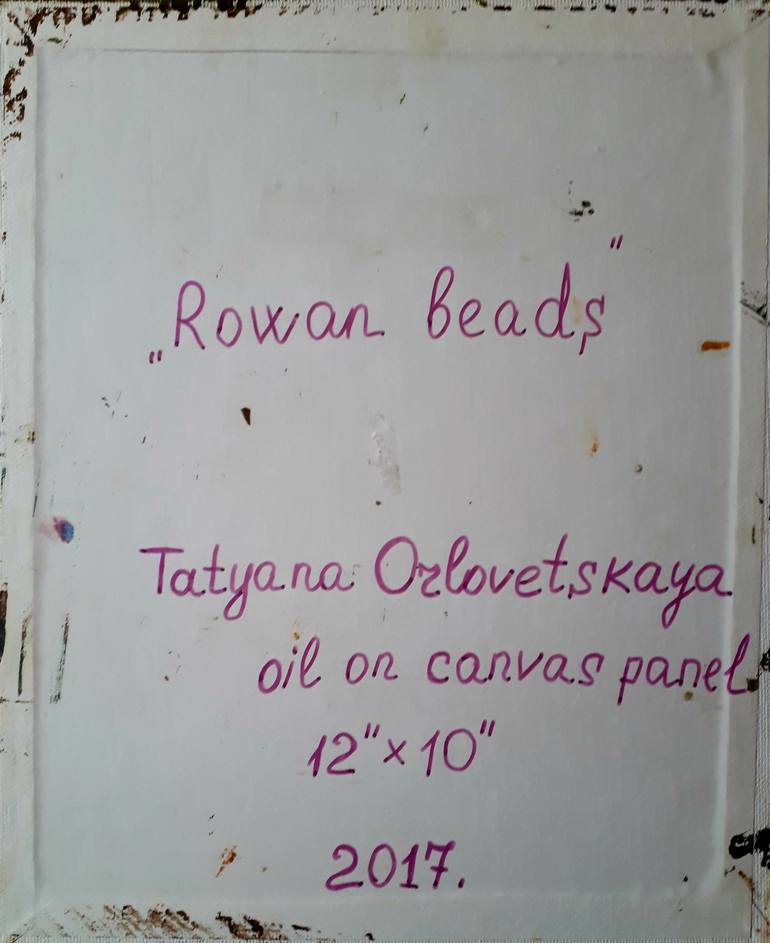 „Rowan beads"
Tatyana Orlovetskaya
oil on canvas panel
12"×10"
2017.